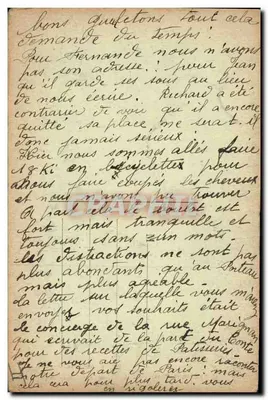 bons quartons tout cela
demande du temps!
Pour Fernande nous n'avons
pas son adresse! pour Jean
qu'il garde ses sous au lieu
de nous écrire. Richard a été
contrarié de voir qu'il a encore
quitté sa place, ne sera-t-il
donc jamais sérieux!
Hier nous sommes allés faire
12 km en bicyclettes pour
nous faire couper les cheveux
et nous n'avons pu trouver
A part cela la santé est
fort mais tranquille et
toujours sans un mots
les distractions ne sont pas
plus abondants qu'au
mais plus agréable
la lettre sur laquelle vous m'avez
envoyé vos souhaits était
le concierge de la rue
qui servait de la part du Comte
pour des recettes de Patisserie
je ne vous ai pas encore raconté
notre départ de Paris! mais
cela sera pour plus tard, vous
en rigolerez